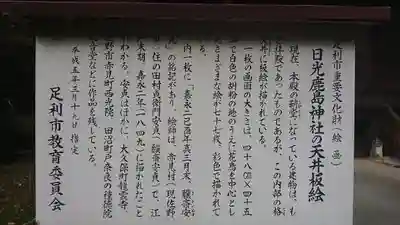 足利市重要文化財（絵画）
日光鹿島神社の天井板絵
現在、本殿の鞘堂になっている建物は、も
と拝殿であったものであるが、この内部の格
天井に板絵が描かれている。
一枚の画面の大きさは、四十八（×四十五
で白色の胡粉の地のうえに花鳥を中心とし
さまざまな絵が七十七枚、彩色で描かれて
る。
内一枚に「嘉永二己酉年孟三月末、驥斎安
」の銘記があり、絵師は、赤見村（現佐野
住の田村
安貞」で、江
末期、嘉永二年（一八四九）に描かれたこと
わかる。安貞はほかに、大久保町
野市赤見町西光院、田沼町戸奈良の種徳院
音堂などに作品を残している。
平成五年三月十九日指定
足利市教育委員会